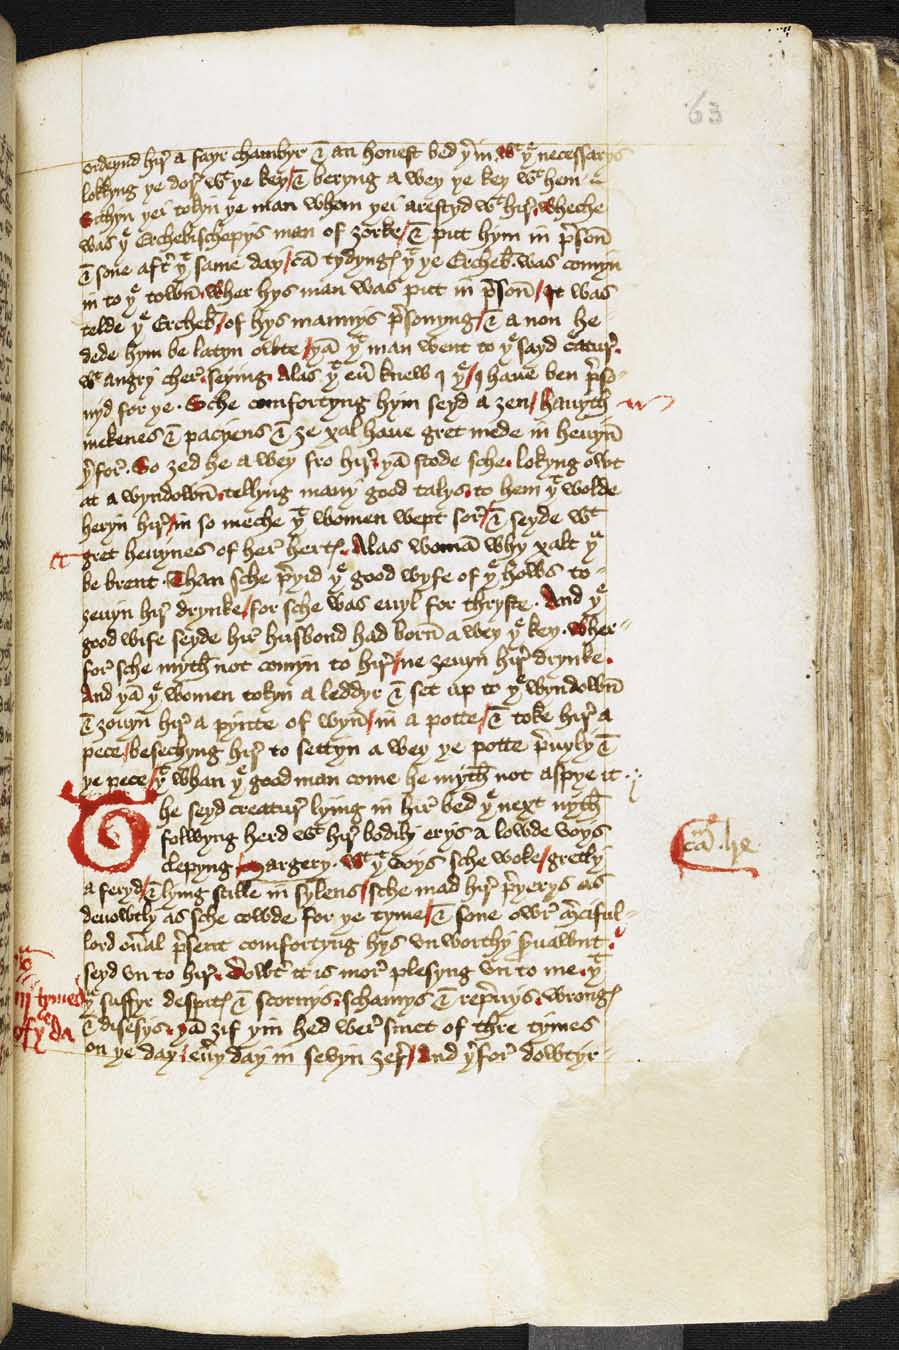 63
ordeynd hir̛ a fayr chambyr & an honest bed þ̛in. wt þe necessarys
lokkyng þe dor̛ wt þe key / & beryng a wey þe key wt hem
Sithyn þei tokyn þe man whom þei arestyd wt hir̛. wheche
was þe Erchebischopys man of ȝorke / & putt hym in p̛son̄
& sone aft̛ þe same day / cā tydyngꝭ þt þe Erchēb. was comyn
in to þe town̄. wher hys man was putt in p̛son̄ / It was
telde þe Erchēb / of hys mannys p̛sonyng / & a non he
dede hym be latyn owte / þā þt man went to þe sayd c̄atur̛.
wt angry cher̛. seying. Alas þt eū knew I þe / I haue ben p̛so-
nyd for þe. Sche comfortyng hym seyd a ȝen / Hauyth
mekenes & pacyens & ȝe xal haue gret mede in heuyn̄
þ̛for̛. So ȝed he a wey fro hir̛. þā stode sche. lokyng owt
at a wyndown̄. tellyng many good talys. to hem þt wolde
heryn hir̛ / in so meche þt women wept sor̛ / & seyde wt
gret heuynes of her̛ hertꝭ. Alas womā why xalt þu
be brent. Than sche p̛yid þe good wyfe of þe hows to-
ȝeuyn hir̛ drynke / for sche was euyl for thryste. And þe
good wife seyde hir̛ husbond had born̄ a wey þe key. wher-
for̛ sche myth̄ not comyn to hir̛ / ne ȝeuyn hir̛ drynke.
And þā þe women tokyn a leddyr & set up to þe wyndown̄
& ȝouyn hir̛ a pynte of wyn̄ / in a potte / & toke hir̛ a
pece / besechyng hir̛ to settyn a wey þe potte p̛uyly &
þe pece / þt whan þe good man come he myth̄ not aspye it
The seyd creatur̛ lying in hir̛ bed þe next nyth̄
folwyng herd wt hir̛ bodily erys a lowde voys
clepyng / Margery. wt þt voys sche woke / gretly
cām. liiij
a feryd / & lying stille in sylens / sche mad hir̛ p̛yerys as
deuowtly as sche cowde for þe tyme / & sone owr̛ m̛ciful-
lord ou̅al p̛sent comfortyng hys vnworthy s̛uawnt.
seyd vn to hir̛. Dowt̛ it is mor̛ plesyng vn to me. þt
þu suffyr despitꝭ & scornys. schamys & repreuys. wrongꝭ
iij tymes
of þe day
& disesys. þā ȝif þin hed wer̛ smet of thre tymes
on þe day. eu̅y day in sevyn ȝer̛ / And þ̛for̛ dowtyr-